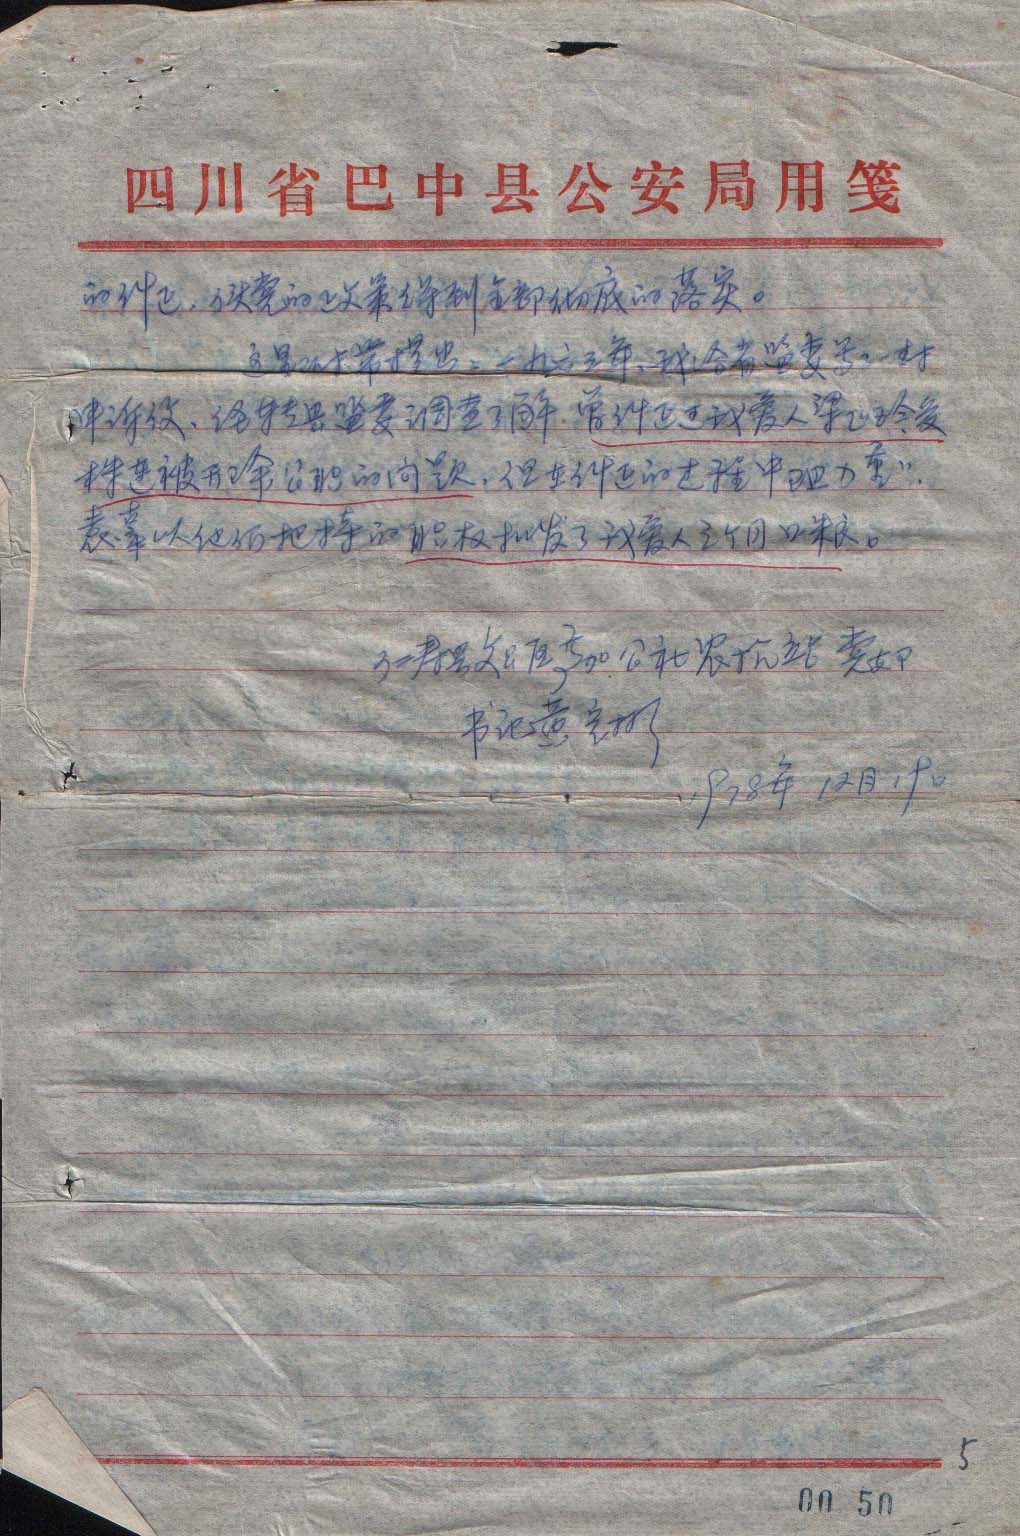 四川省巴中县公安局用笺
的纠正，使党的政策得到全部彻底的落实。
这里顺带提出：一九六三年，我给省监委写一封
申诉后，经转县监委调查了解，曾纠正过我爱人梁正玲受
株连被开除公职的问题，但在纠正的过程中阻力重重，
袁 以他们把持的职权扣发了我爱人三个月口粮。
公社农机站党支部
书记黄定彬
1978年12月19日
5
00 50